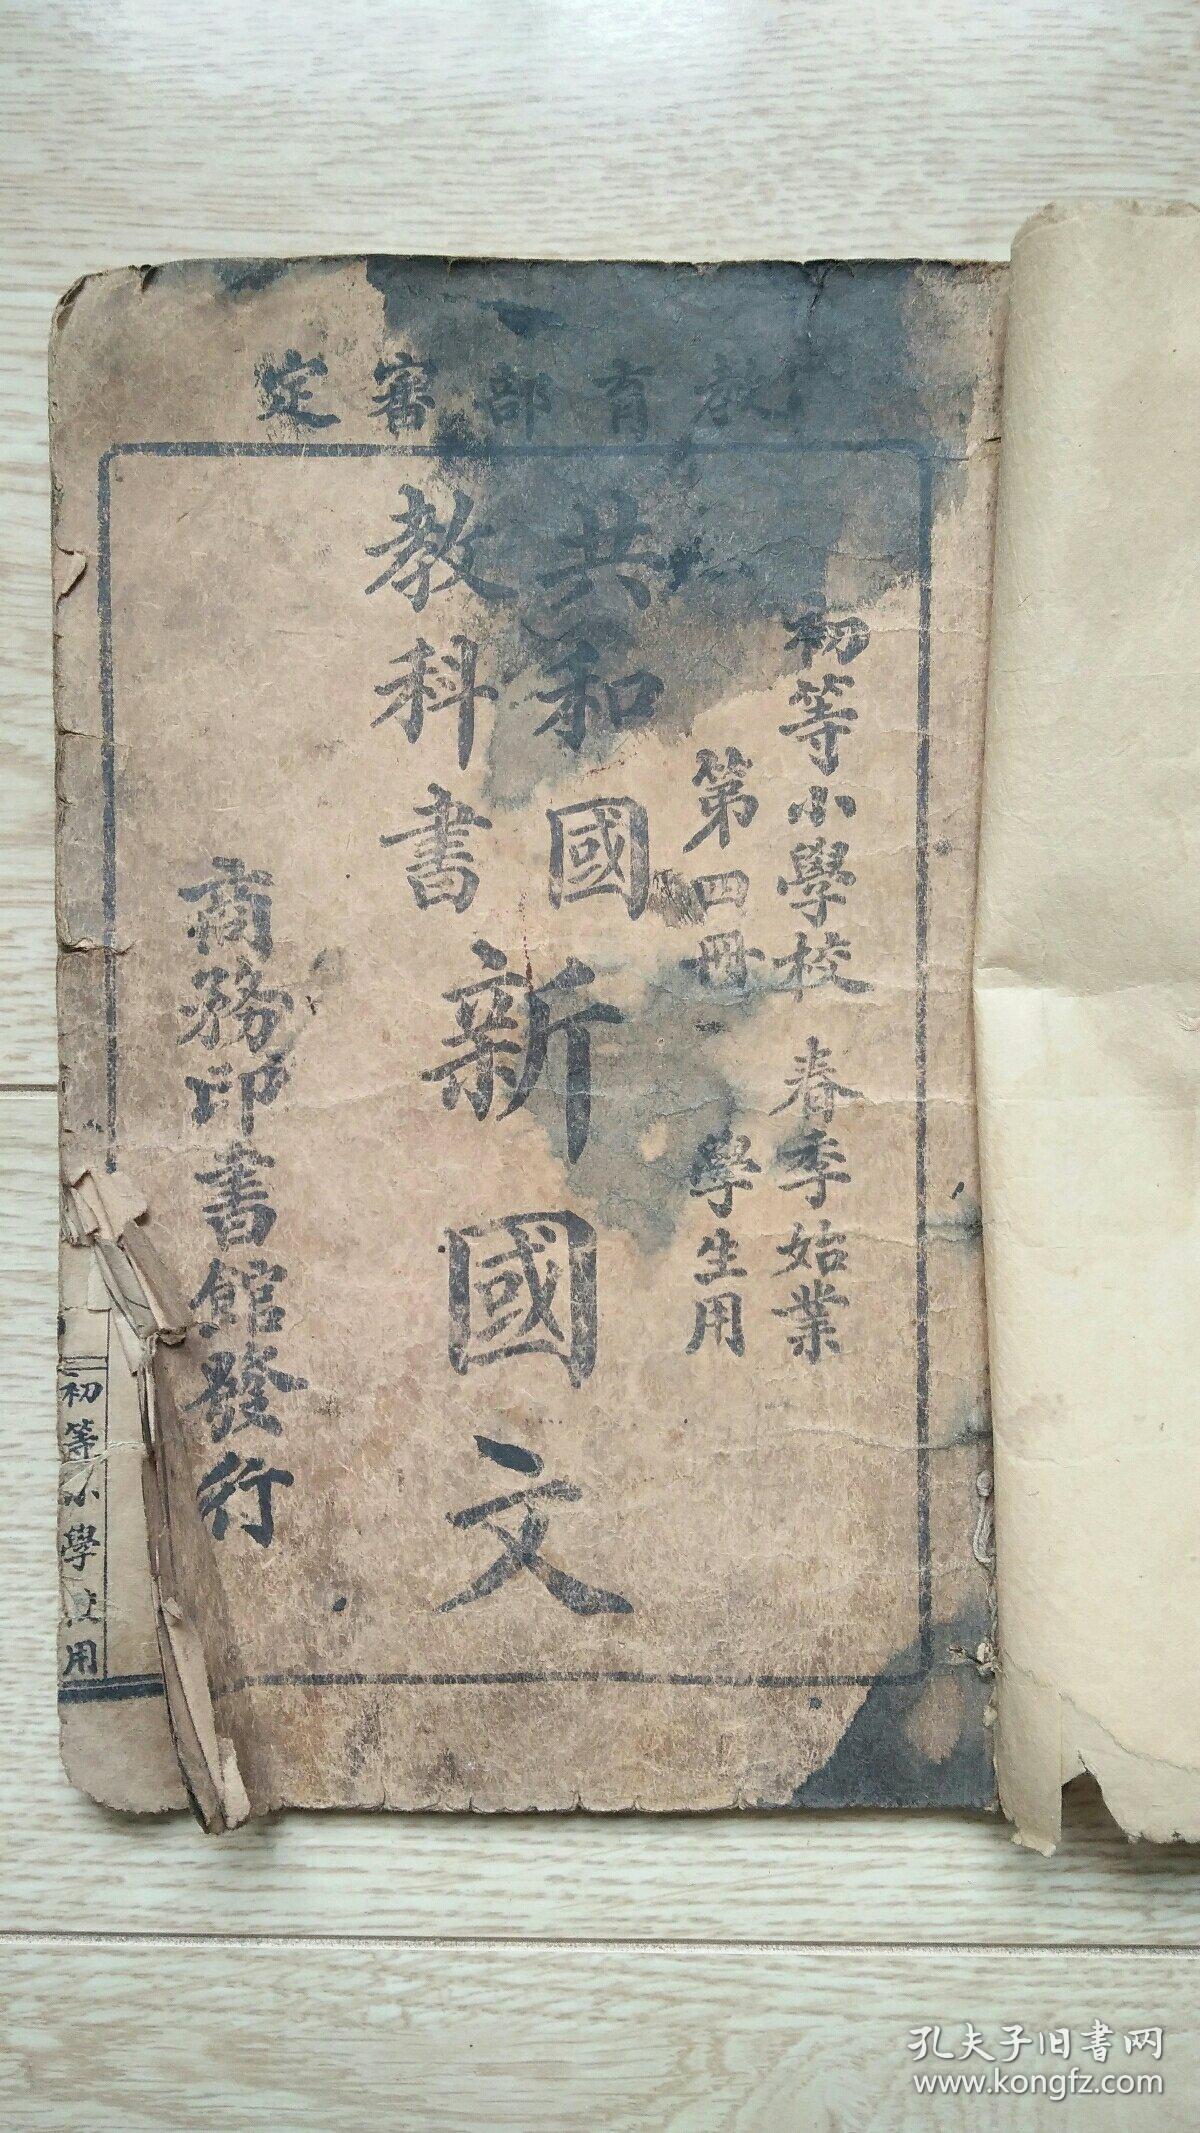 教育部審定
初等小學校 春季始業
第四冊 學生用
共和國
教科書
新國文
商務印書館發行
初等小學校用
孔夫子旧书网
www.kongfz.com